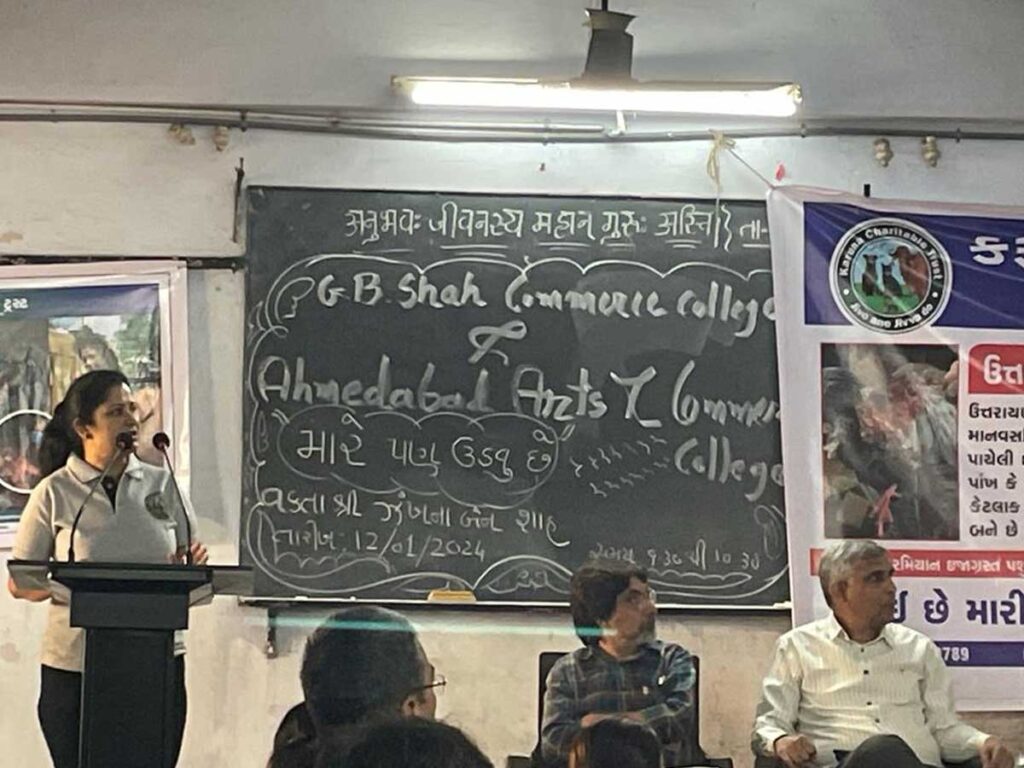 अनुभवः जीवनस्य महान् गुरुः अस्ति ता-
G.B. Shah Commerce College
&
Ahmedabad Arts & Commerce
College
મારે પણ ઉડવુ છે
વકતા શ્રી ઝંખના બેન શાહ
તારીખ: 12/01/2024
સમય ૯:૩૦ થી ૧૦:૩૦
ટ્રસ્ટ
Karuna Charitable Trust
Jivo ane Jivva do
ઉત્ત
ઉત્તરાયણ
માનવસ
પાયેલી
પાંખ કે
કેટલાક
બને છે
રમિયાન ઇજાગ્રસ્ત પશુ
છે મારી
789